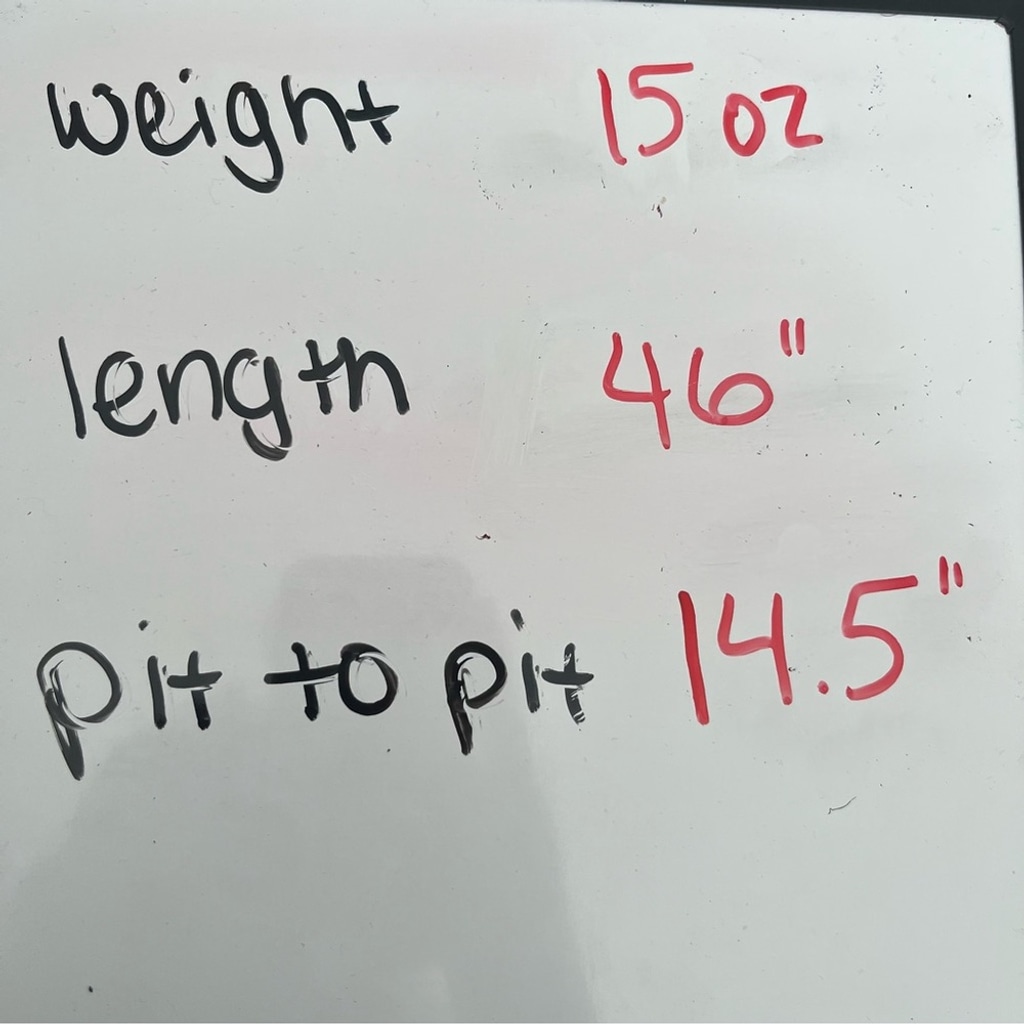 weight 15 oz
length 46"
pit to pit 14.5"